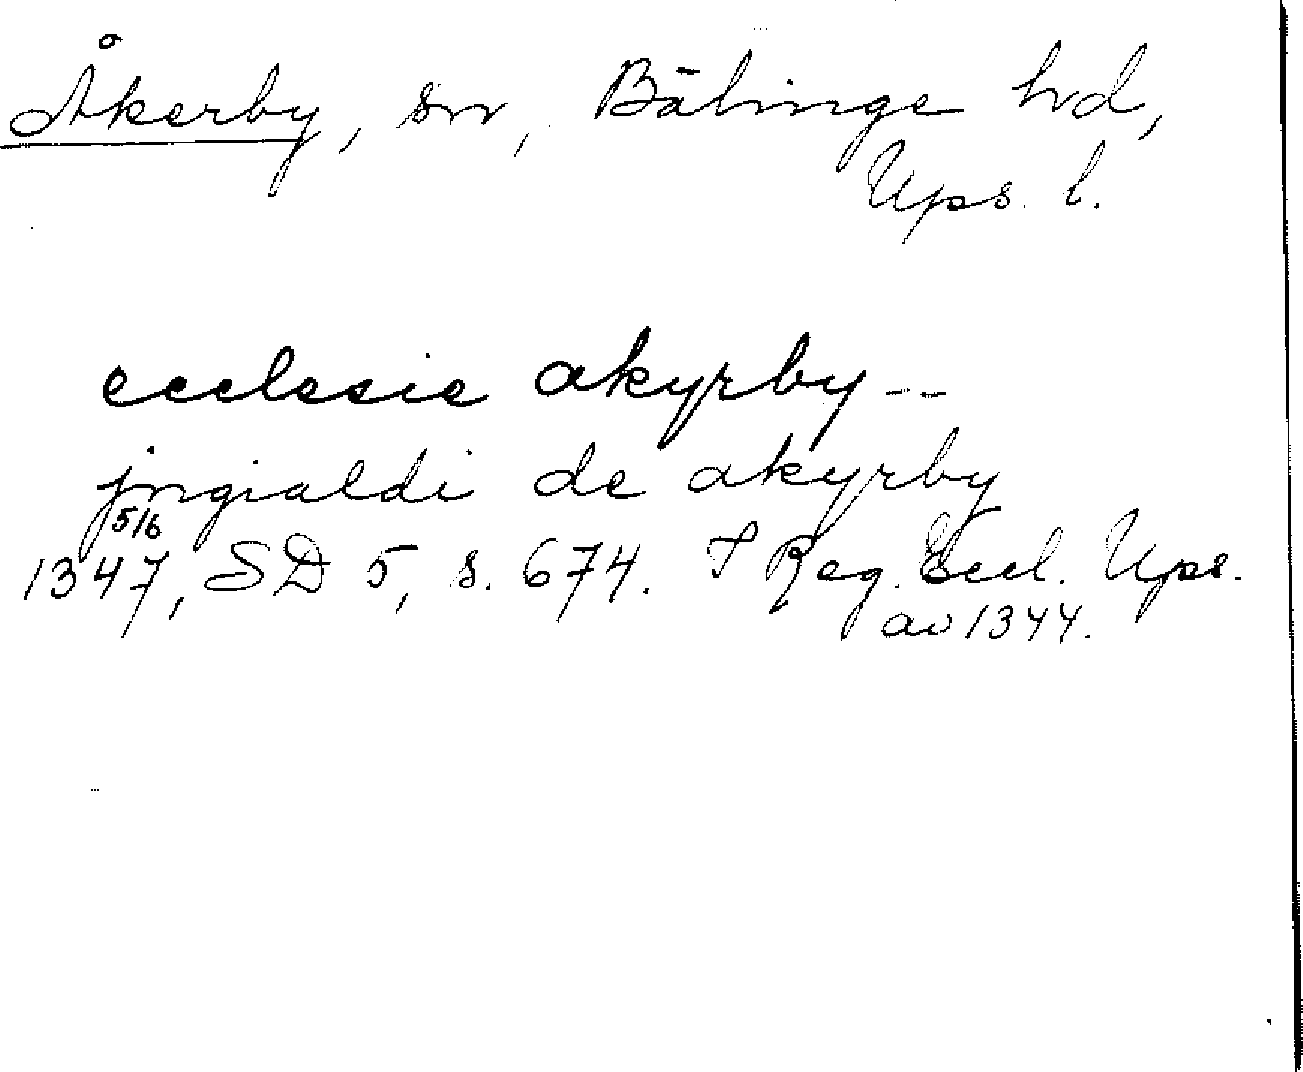 Åkerby, sn, Bälinge hd,
Ups. l.
ecclesie akyrby --
jngialdi de akyrby
5/6
1347, SD 5, s. 674. I Reg. Eccl. Ups.
av 1344.